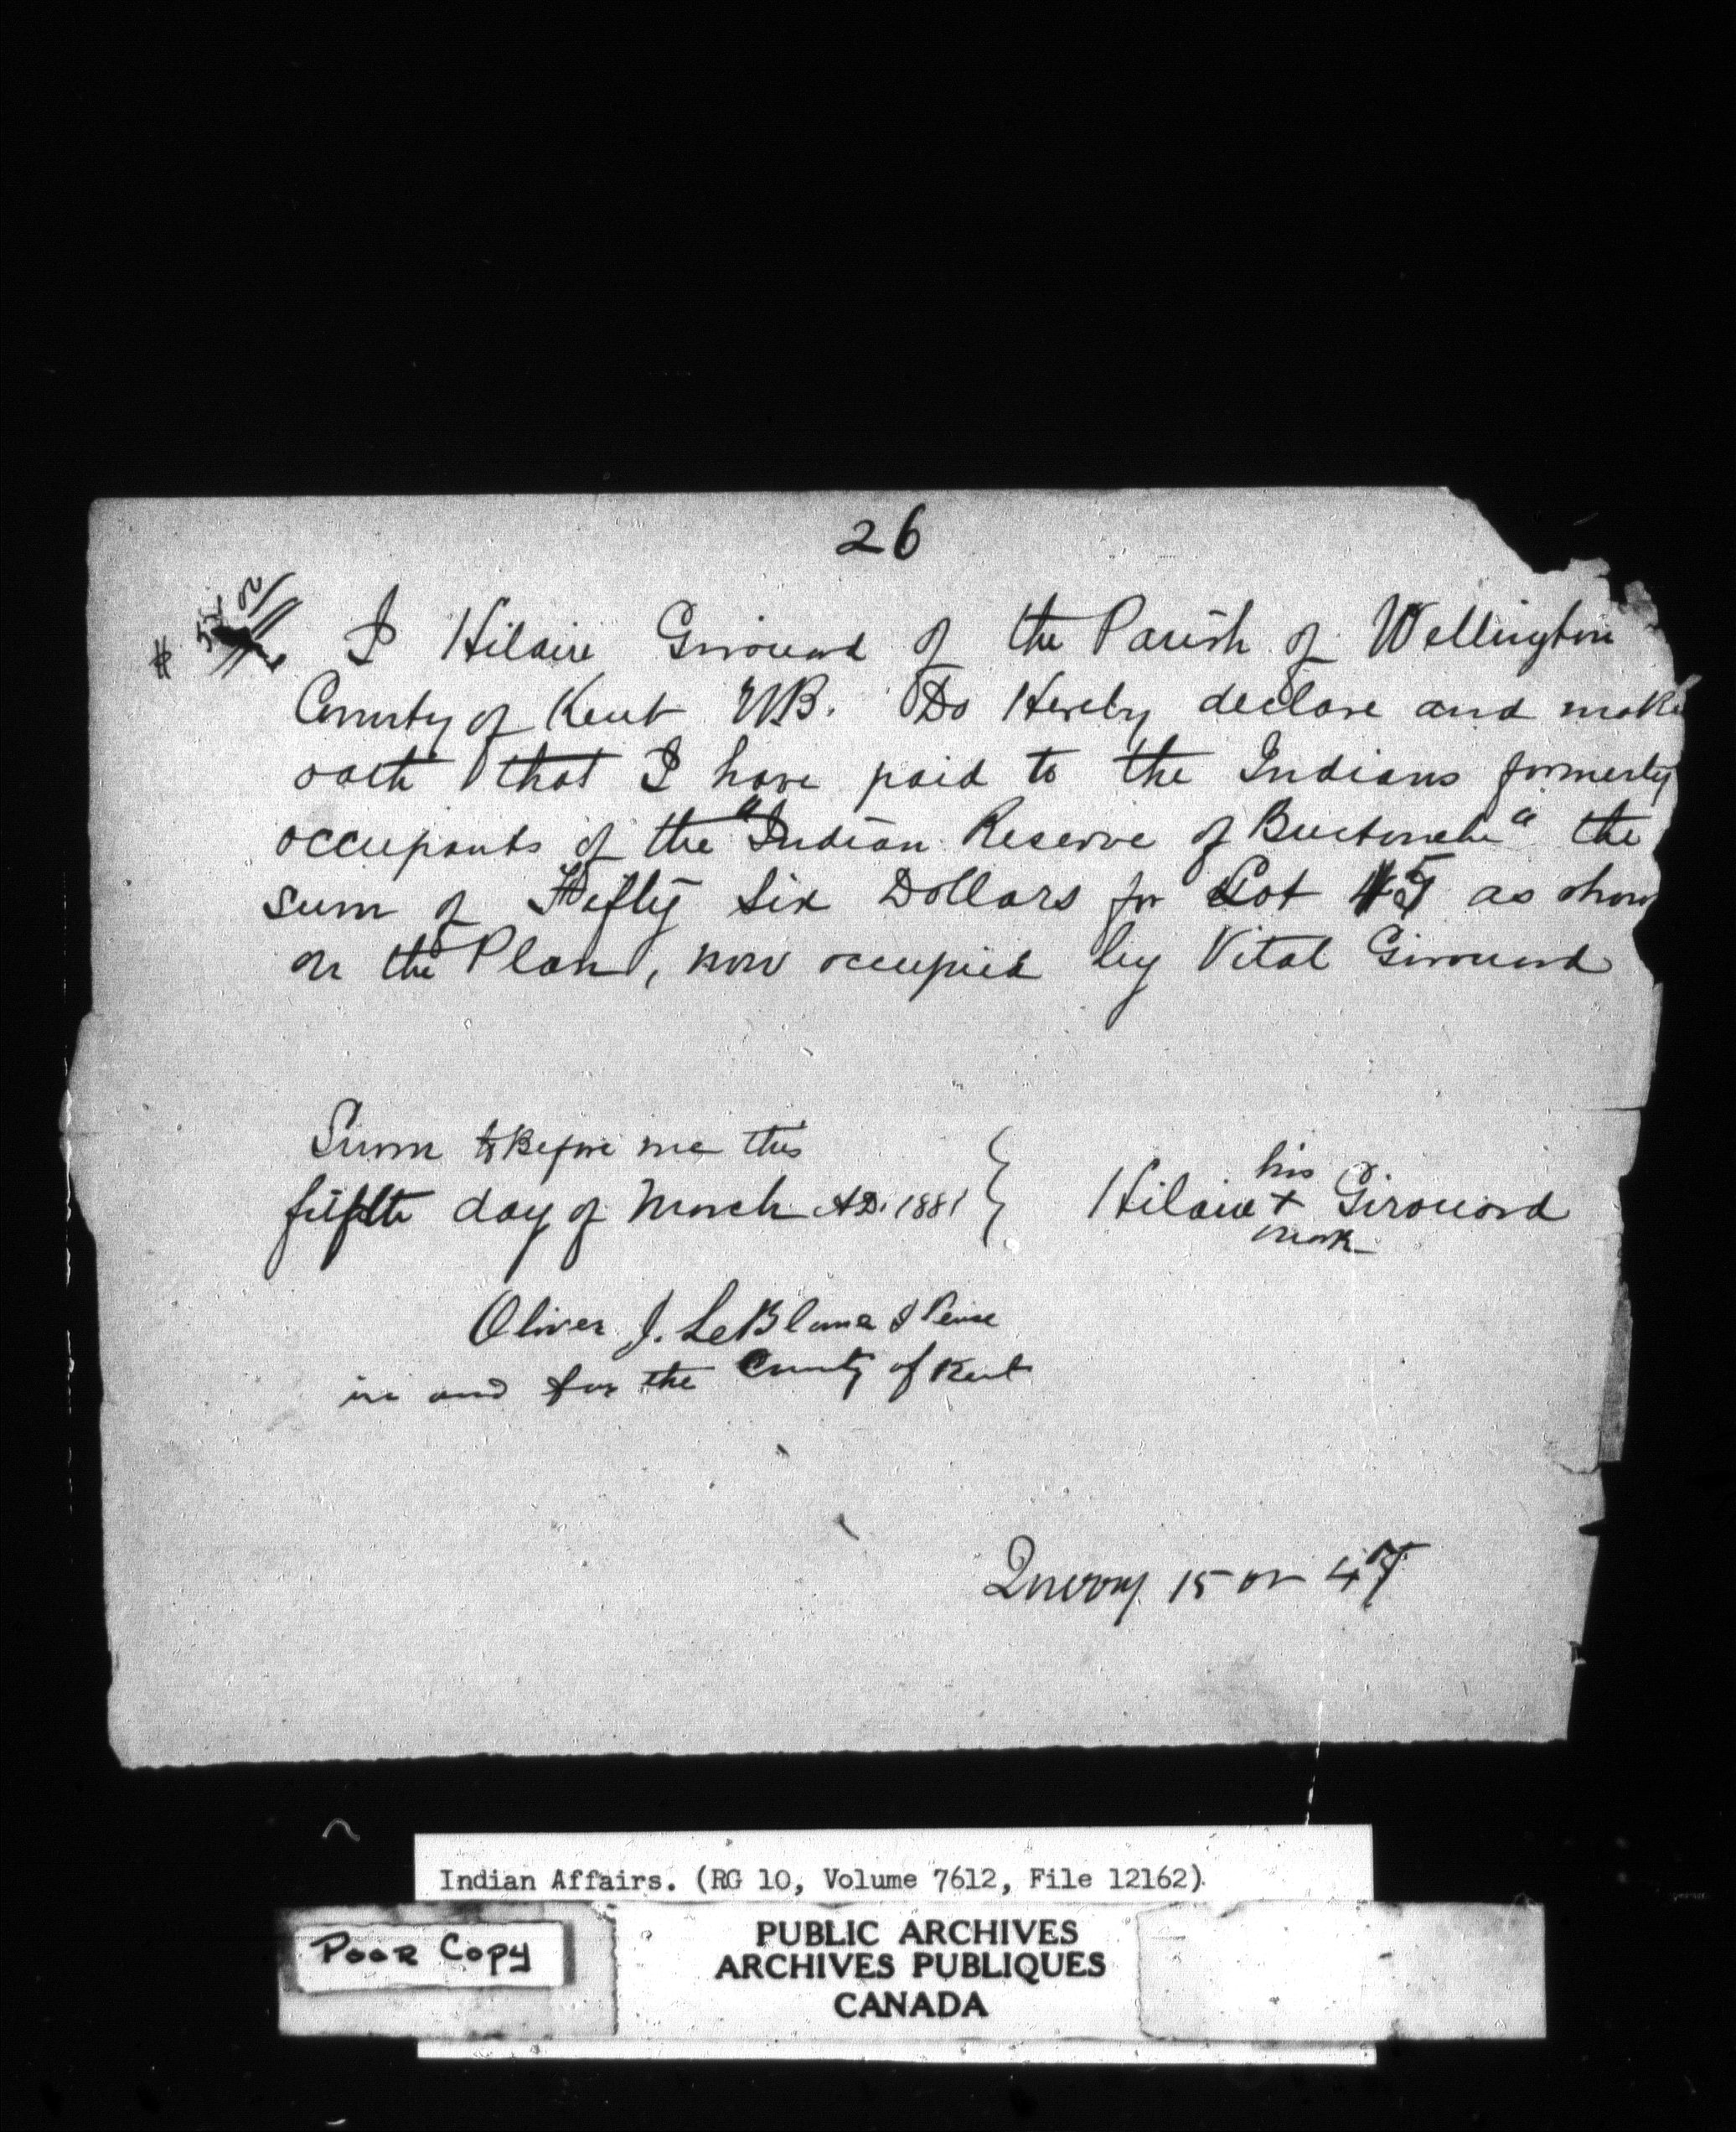 26
I Hilaire Girouard of the Parish of Wellington
County of Kent NB. Do Hereby declare and make
oath that I have paid to the Indians formerly
occupants of the "Indian Reserve of Buctouche" the
sum of Fifty Six Dollars for Lot as shown
on the Plan, now occupied by Vital Girouard
Sworn to Before me this
fifth day of March AD. 1881
his
Hilaire + Girouard
mark
Oliver J. LeBlanc J Peace
in and for the County of Kent
Querry 15 or 47
Indian Affairs. (RG 10, Volume 7612, File 12162)
Poor Copy
PUBLIC ARCHIVES
ARCHIVES PUBLIQUES
CANADA